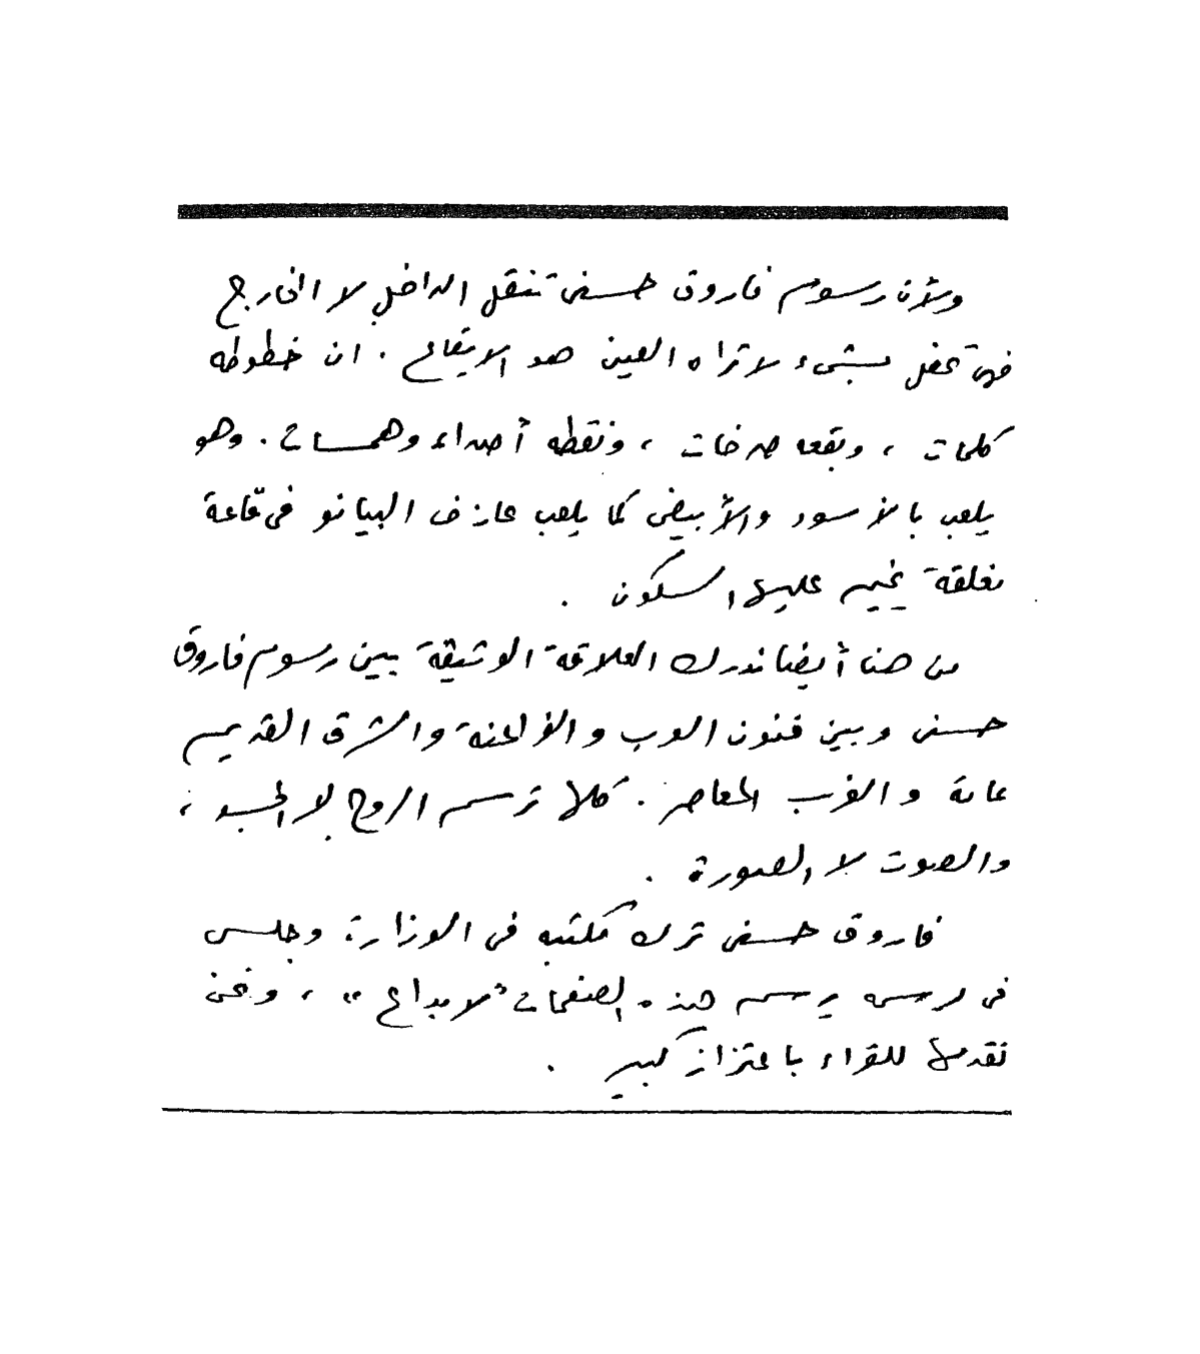 ولأن رسوم فاروق حسنى تنقل الداخل لا الخارج
فهى تحفل بشىء لا تراه العين هو الايقاع . ان خطوطه
كلمات ، وبقعه صرخات ، ونقطه أصداء وهمسات . وهو
يلعب بالأسود والأبيض كما يلعب عازف البيانو فى قاعة
مغلقة يخيم عليها السكون .
من هنا أيضا ندرك العلاقة الوثيقة بين رسوم فاروق
حسنى وبين فنون العرب والفراعنة والشرق القديم
عامة والغرب المعاصر . كلها ترسم الروح لا الجسد ،
والصوت لا الصورة .
فاروق حسنى ترك مكتبه فى الوزارة وجلس
فى مرسمه يرسم هذه الصفحات " لابداع " ، ونحن
نقدمها للقراء باعتزاز كبير .